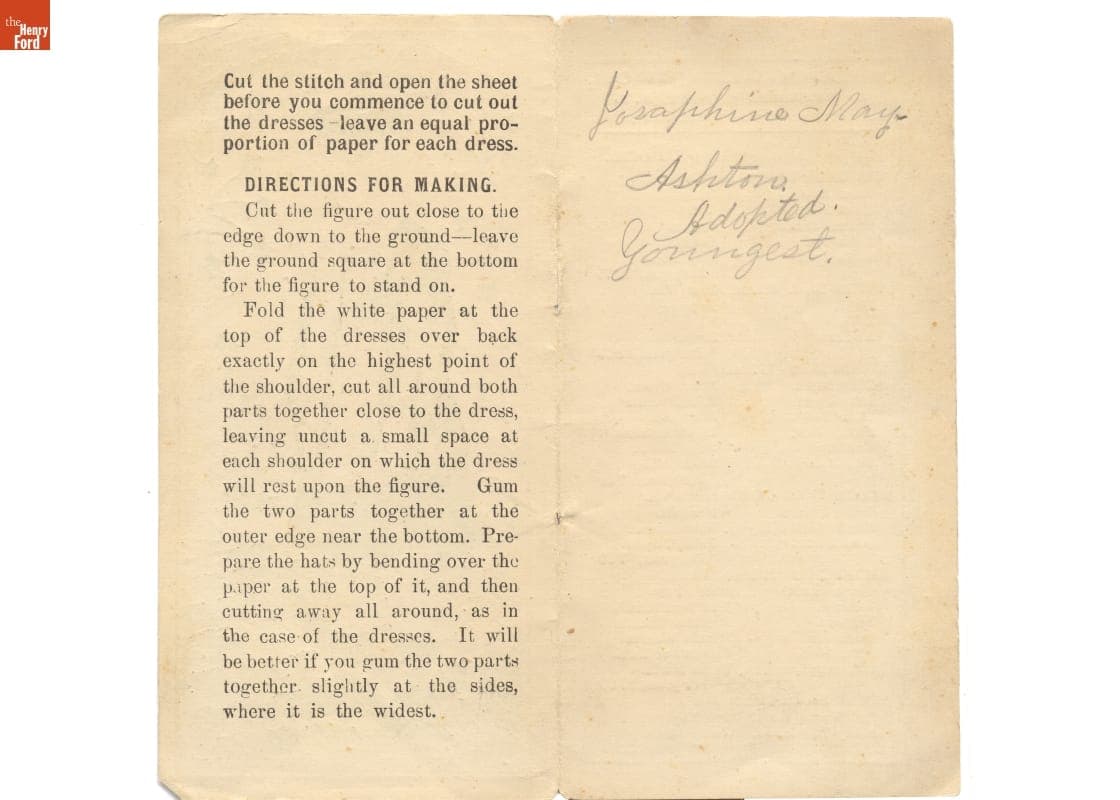 the
Henry
Ford
Cut the stitch and open the sheet
before you commence to cut out
the dresses—leave an equal pro-
portion of paper for each dress.
DIRECTIONS FOR MAKING.
Cut the figure out close to the
edge down to the ground—leave
the ground square at the bottom
for the figure to stand on.
Fold the white paper at the
top of the dresses over back
exactly on the highest point of
the shoulder, cut all around both
parts together close to the dress,
leaving uncut a small space at
each shoulder on which the dress
will rest upon the figure. Gum
the two parts together at the
outer edge near the bottom. Pre-
pare the hats by bending over the
paper at the top of it, and then
cutting away all around, as in
the case of the dresses. It will
be better if you gum the two parts
together slightly at the sides,
where it is the widest.
Josaphine May
Ashton.
Adopted.
Youngest.